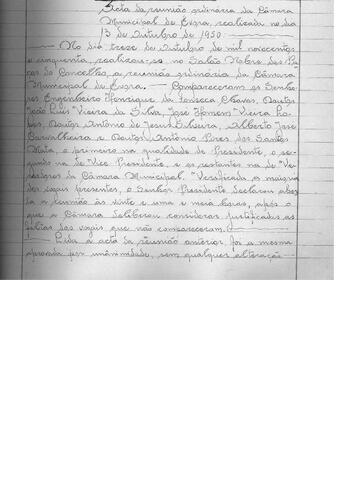 Acta da reunião ordinária da Câmara
Municipal de Évora, realizada no dia
13 de Outubro de 1950.
No dia treze de Outubro de mil novecentos
e cinquenta, realizou-se no Salão Nobre dos Pa-
ços do Concelho, a reunião ordinária da Câmara
Municipal de Évora. — Compareceram os Senho-
res Engenheiro Henrique da Fonseca Chaves, Doutor
João Luís Vieira da Silva, José Homem Vieira Lo-
bo, Doutor António de Jesus Silveira, Alberto José
Carvalheira e Doutor António Pires dos Santos
Mata, o primeiro na qualidade de Presidente, o se-
gundo na de Vice Presidente, e os restantes na de Ve-
readores da Câmara Municipal. Verificada a maioria
dos vogais presentes, o Senhor Presidente declarou aber-
ta a reunião às vinte e uma e meia horas, após o
que a Câmara deliberou considerar justificadas as
faltas dos vogais que não compareceram.
Lida a acta da reunião anterior, foi a mesma
aprovada por unanimidade, sem qualquer alteração